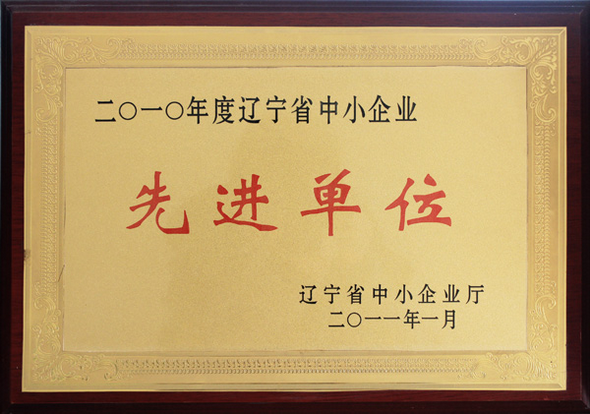 二〇一〇年度辽宁省中小企业
先进单位
辽宁省中小企业厅
二〇一一年一月